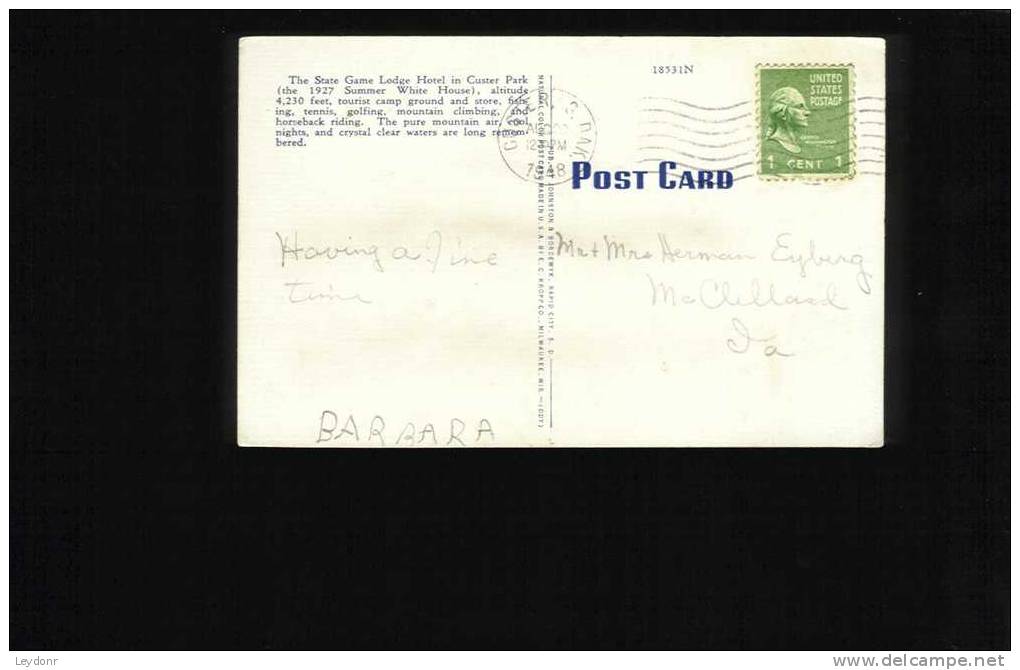 The State Game Lodge Hotel in Custer Park
(the 1927 Summer White House), altitude
4,230 feet, tourist camp ground and store, fish-
ing, tennis, golfing, mountain climbing, and
horseback riding. The pure mountain air, cool
nights, and crystal clear waters are long remem-
bered.
18531N
UNITED
STATES
POSTAGE
1 CENT 1
CUSTER S. DAK.
12
PM
POST CARD
NATIONAL COLOR POST CARD MADE IN U.S.A. BY E. C. KROPP CO., MILWAUKEE, WIS.—(DDT)
PUB. BY JOHNSTON & BORDEWYK, RAPID CITY, S. D.
Having a fine
time
BARBARA
Mr + Mrs Herman Eyberg
McClelland
Ia
Leydonr
www.delcampe.net